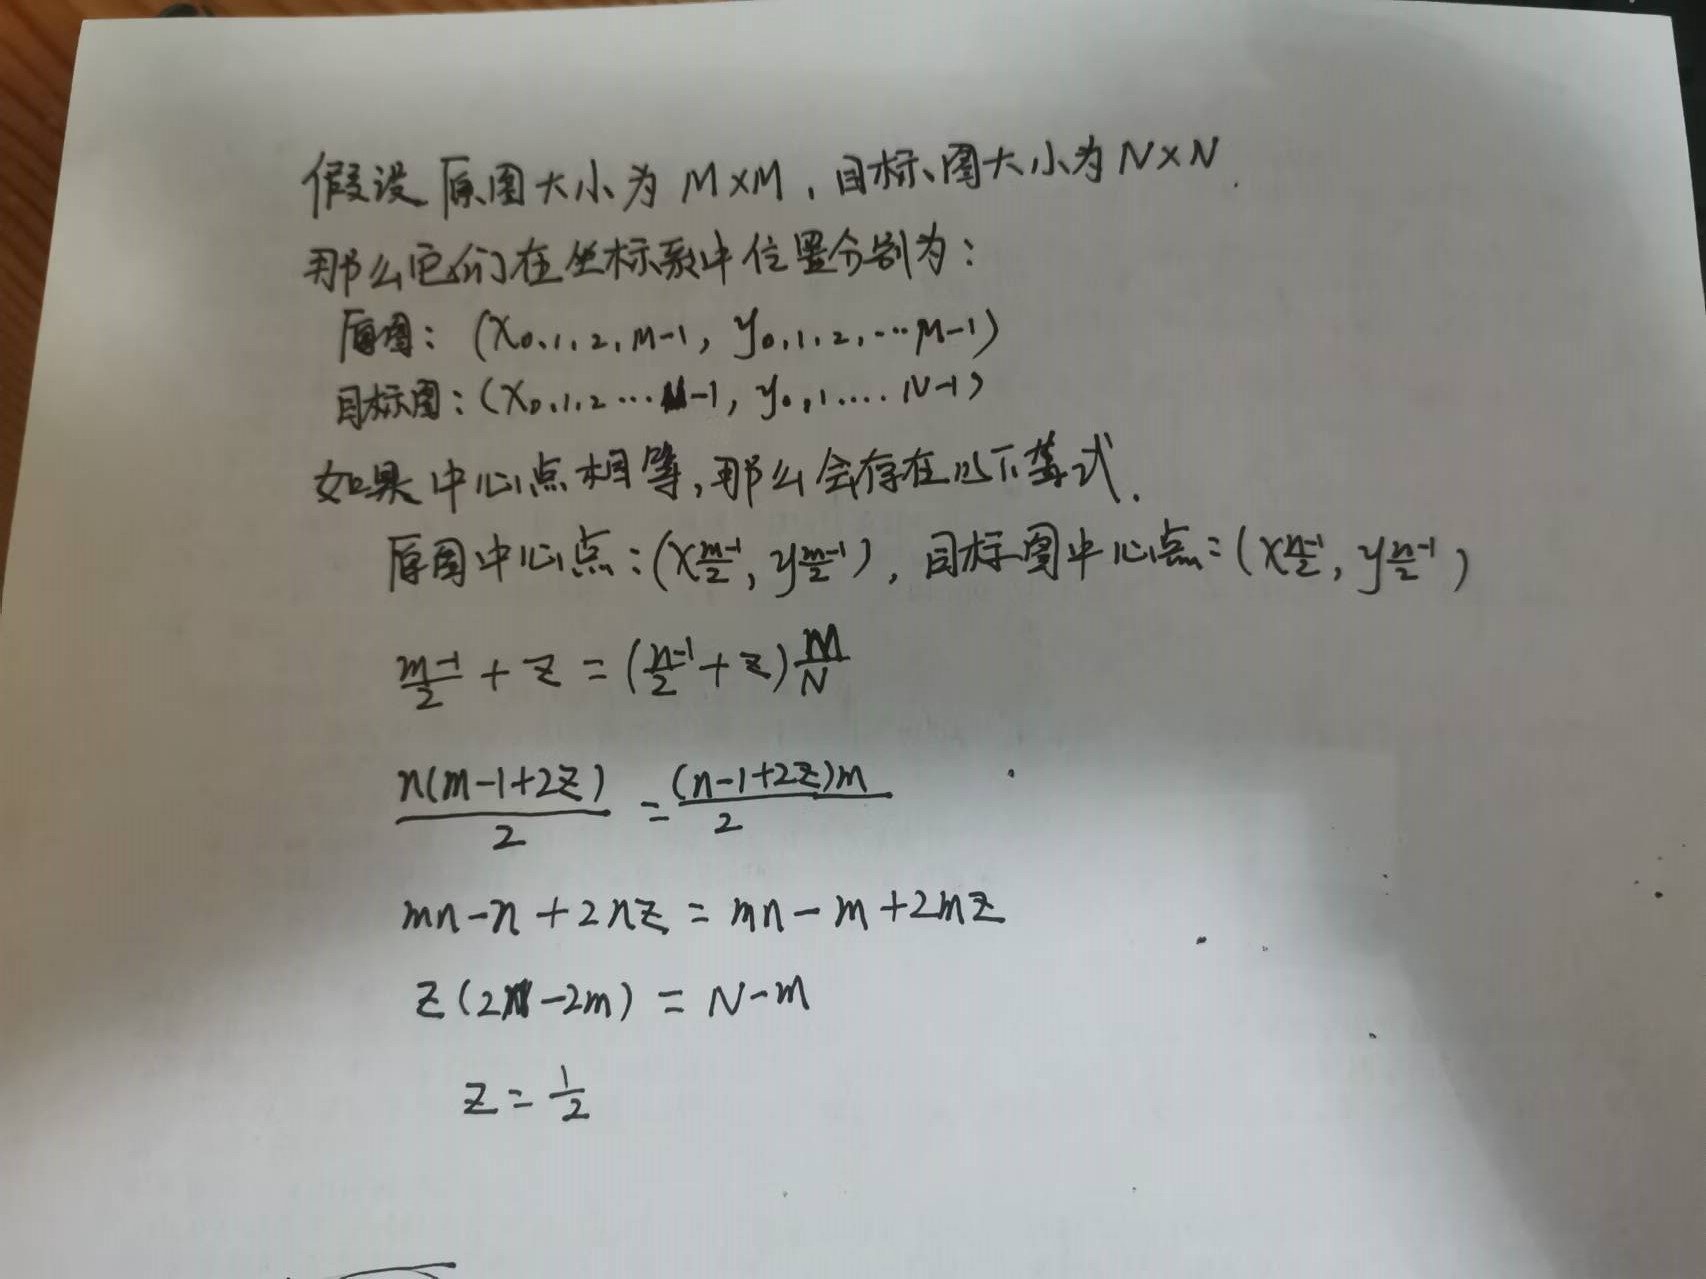 假设原图大小为 M×M，目标图大小为 N×N.
那么它们在坐标系中位置分别为：
原图：(x0,1,2,M-1, y0,1,2,…M-1)
目标图：(x0,1,2…N-1, y0,1.... N-1)
如果中心点相等,那么会存在以下等式.
原图中心点：(x(m-1)/2, y(m-1)/2), 目标图中心点：(x(n-1)/2, y(n-1)/2)
(m-1)/2 + z = ((n-1)/2 + z) M/N
n(m-1+2z)/2 = (n-1+2z)m/2
mn-n+2nz = mn-m+2mz
z(2n-2m) = N-m
z = 1/2